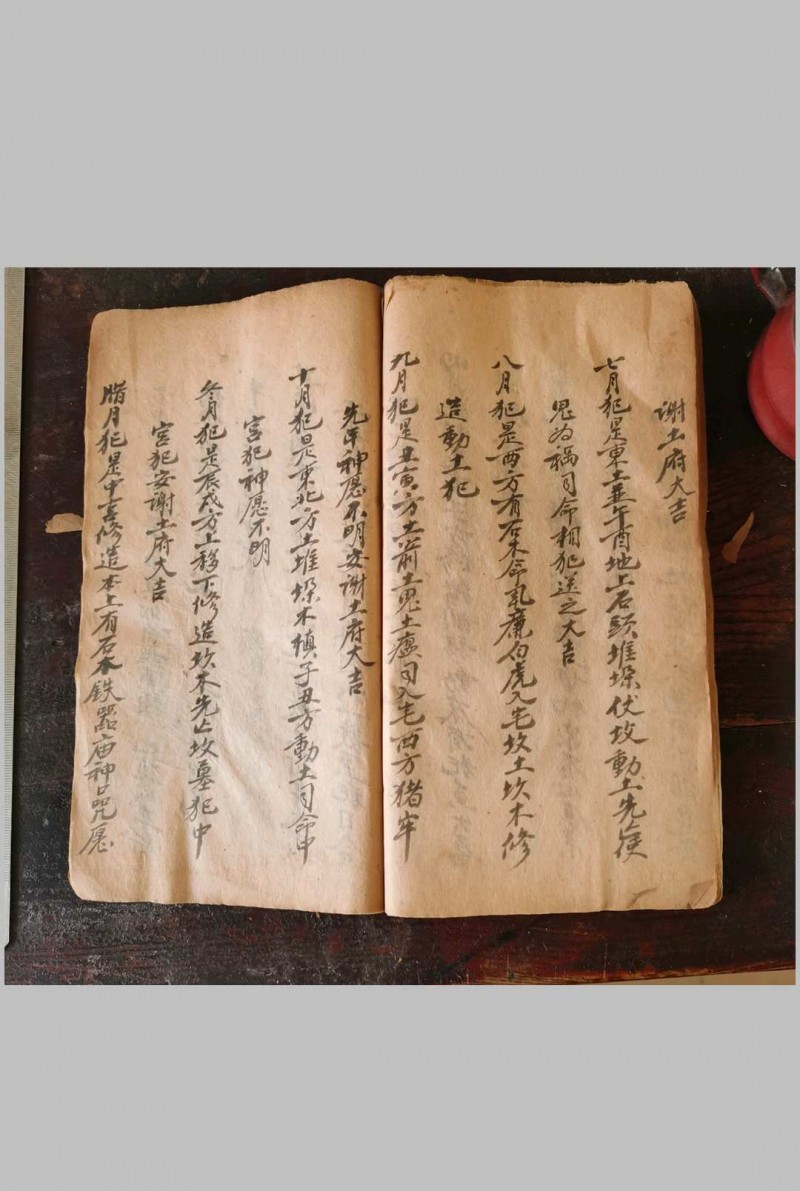 謝土府大吉
七月犯是東土並午酉地上石頭堆垛伏坟動土先亡使
鬼為禍司命相犯送之大吉
八月犯是西方有石木命乱廉白虎入宅坟土坎木修
造動土犯
九月犯是丑寅方土前土鬼土瘟司入宅西方猪牢
先年神愿不明安謝土府大吉
十月犯是東北方土堆垛木植子丑方動土司命中
宫犯神愿不明
冬月犯是辰戌方土移下修造坎木先亡坟墓犯中
宫犯安謝土府大吉
腊月犯是中宫修造本土有石木鉄器庙神咒愿